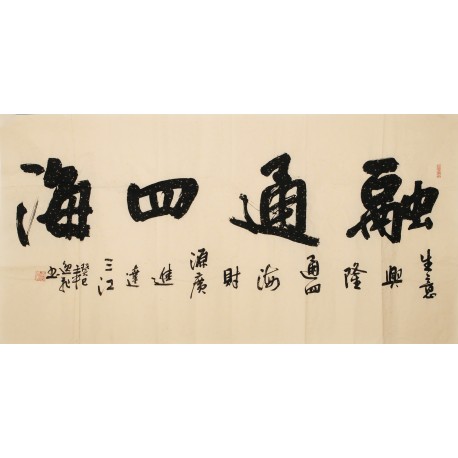 融通四海
生意興隆通四海財源廣進達三江
癸巳年
书